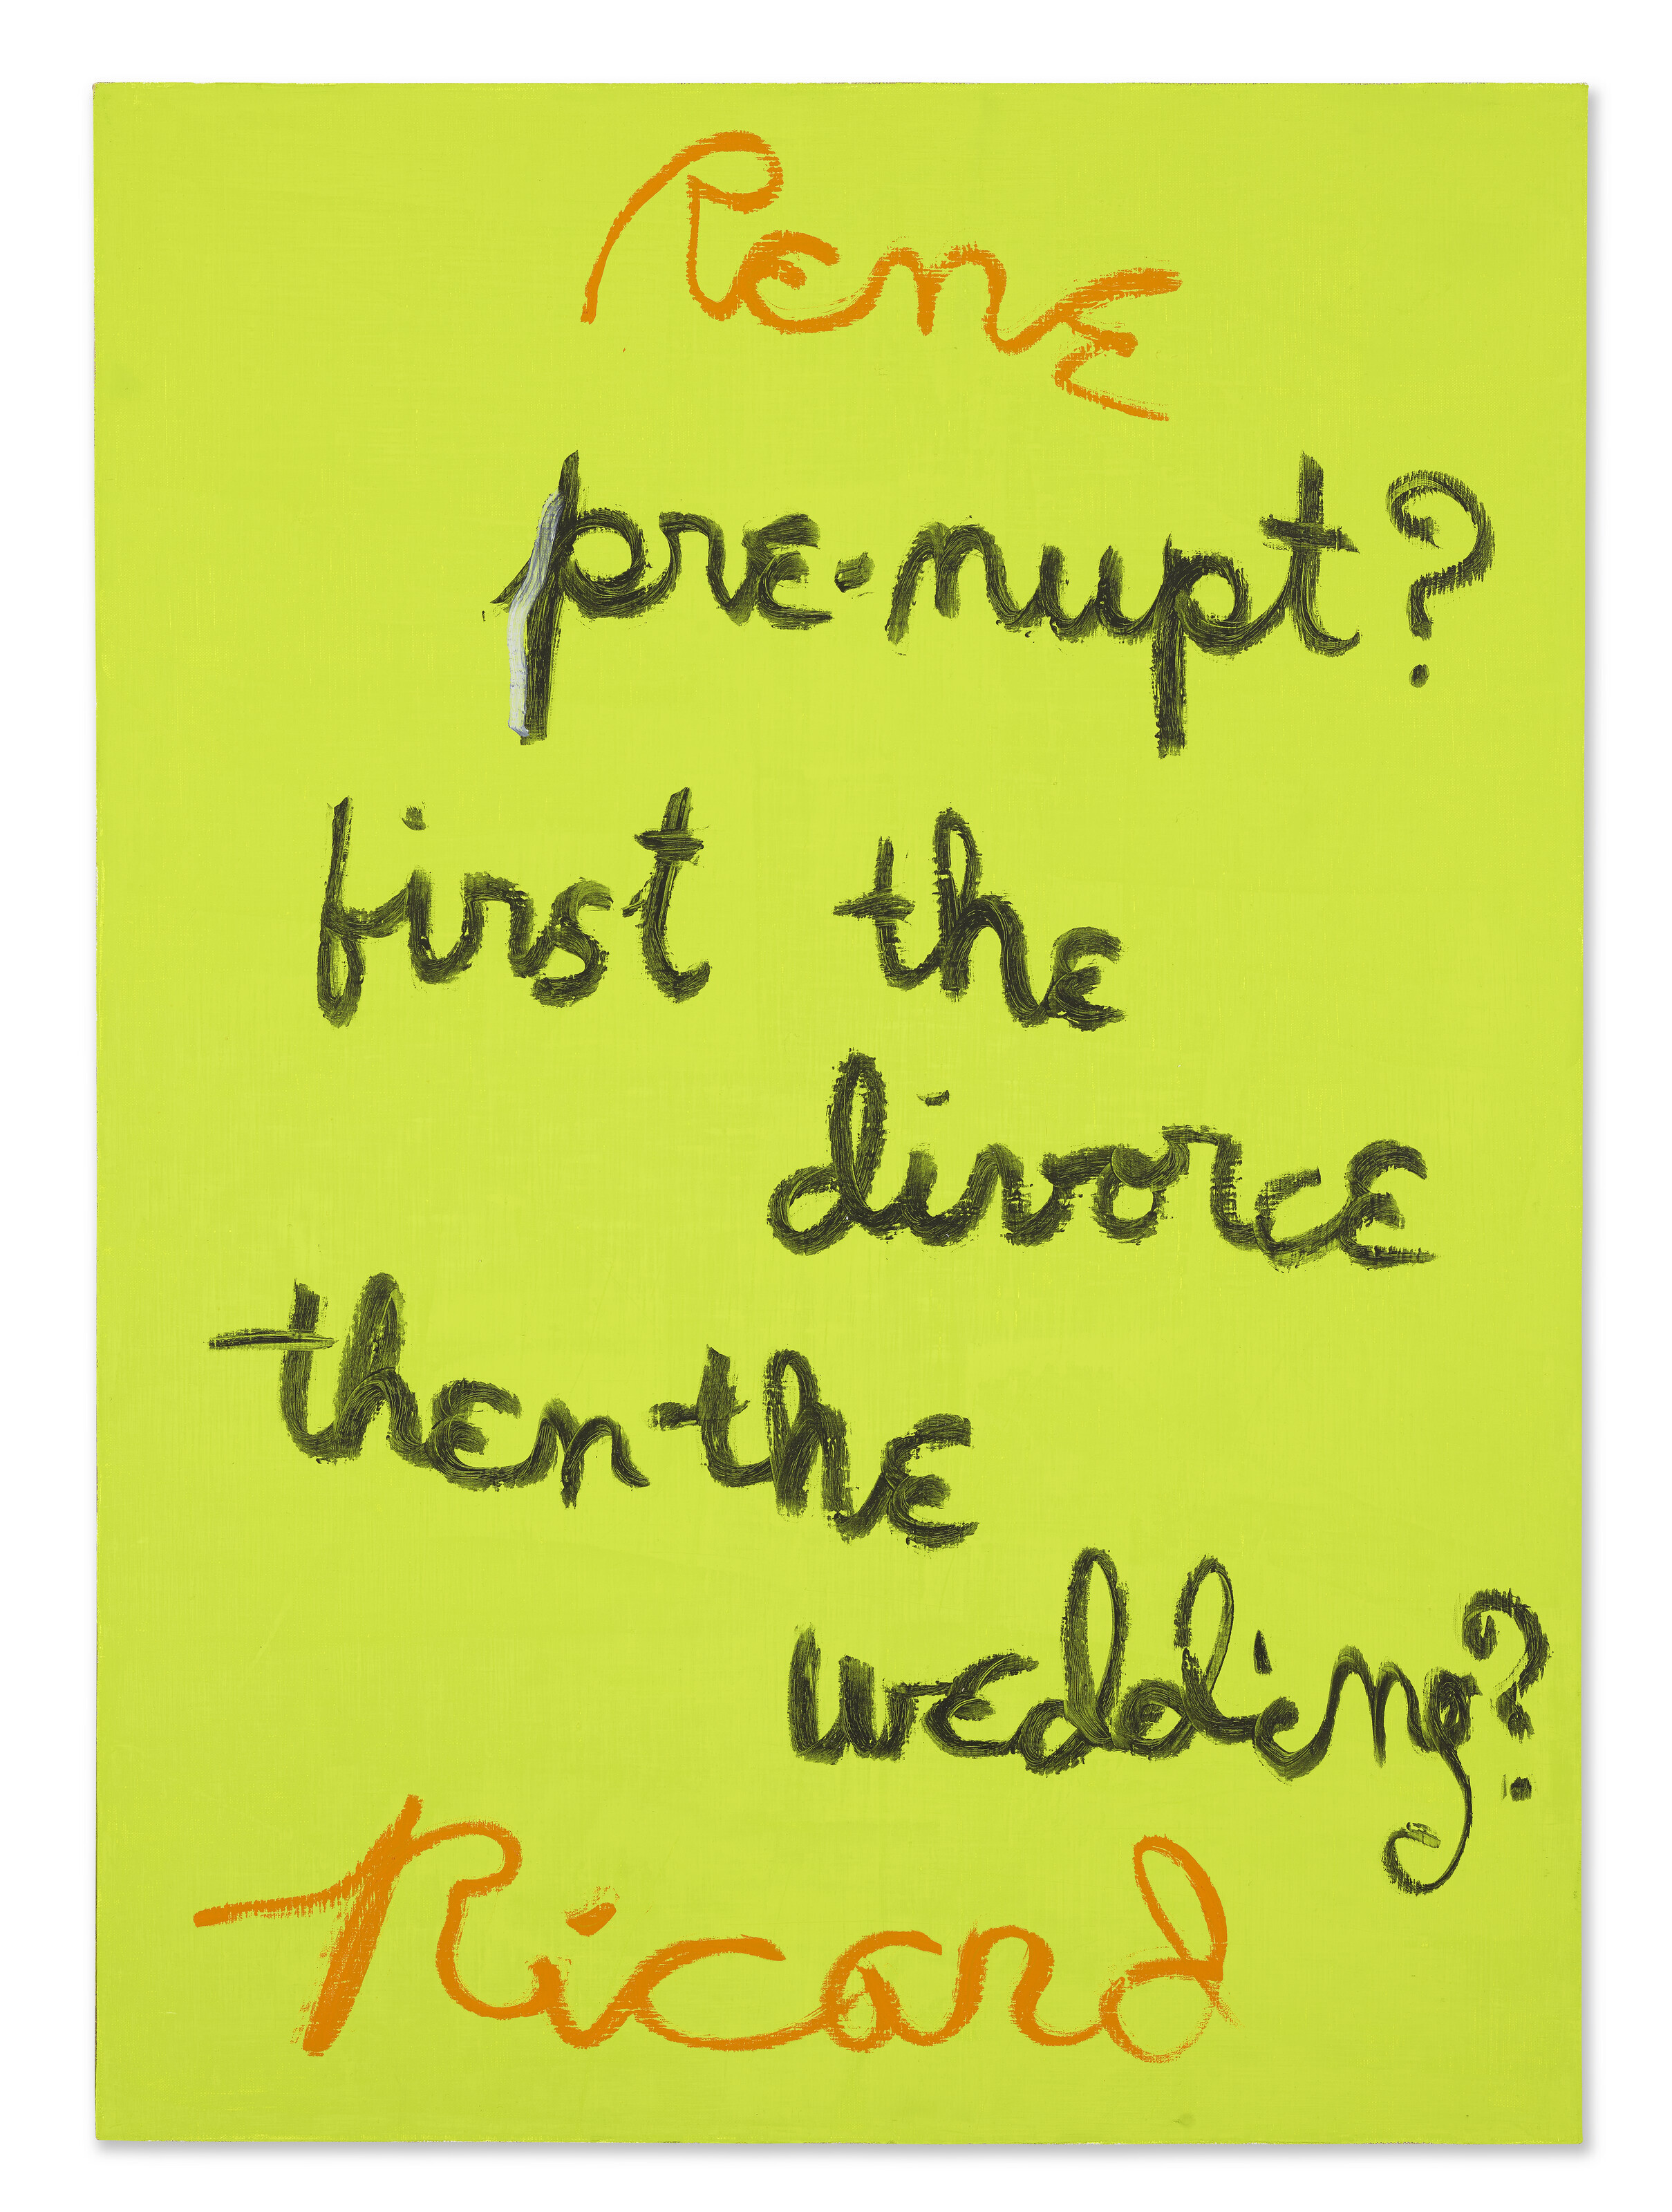 Rene
pre-nupt?
first the
divorce
then the
wedding?
Ricard